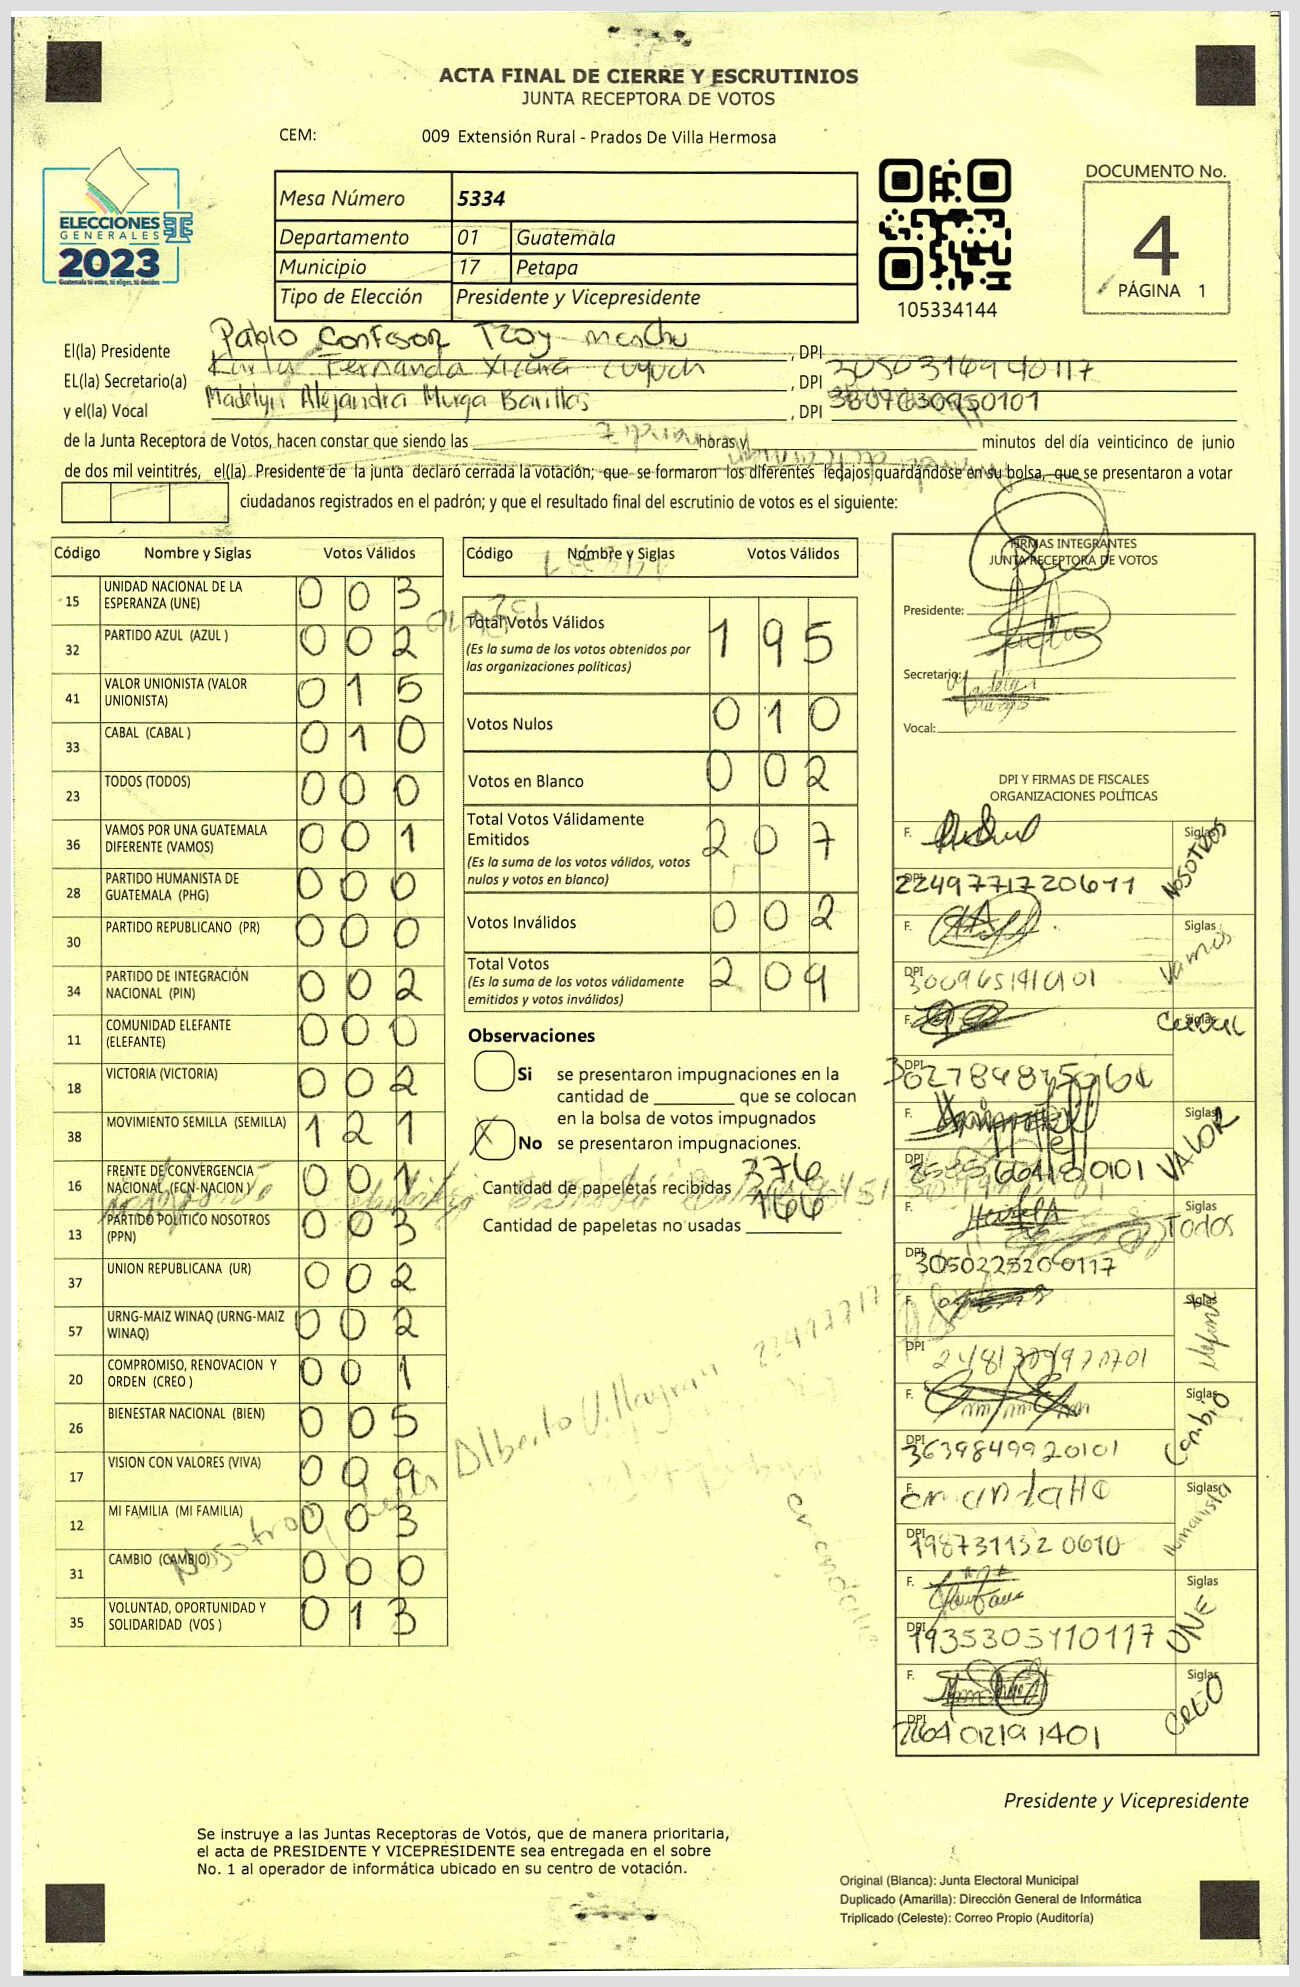 ACTA FINAL DE CIERRE Y ESCRUTINIOS
JUNTA RECEPTORA DE VOTOS
CEM: 009 Extensión Rural - Prados De Villa Hermosa
ELECCIONES
GENERALES
2023
Guatemala tú votas, tú eliges, tú decides
Mesa Número 5334
Departamento 01 Guatemala
Municipio 17 Petapa
Tipo de Elección Presidente y Vicepresidente
105334144
DOCUMENTO No.
4
PÁGINA 1
El(la) Presidente Pablo Confesor Tzoy Menchu, DPI
EL(la) Secretario(a) Karla Fernanda Xicará Cuyuch, DPI 3050316940117
y el(la) Vocal Madelyn Alejandra Murga Barillas, DPI 3307630950101
de la Junta Receptora de Votos, hacen constar que siendo las horas y minutos del día veinticinco de junio
de dos mil veintitrés, el(la) Presidente de la junta declaró cerrada la votación; que se formaron los diferentes legajos guardándose en su bolsa, que se presentaron a votar
ciudadanos registrados en el padrón; y que el resultado final del escrutinio de votos es el siguiente:
Código Nombre y Siglas Votos Válidos
15 UNIDAD NACIONAL DE LA ESPERANZA (UNE) 0 0 3
32 PARTIDO AZUL (AZUL ) 0 0 2
41 VALOR UNIONISTA (VALOR UNIONISTA) 0 1 5
33 CABAL (CABAL ) 0 1 0
23 TODOS (TODOS) 0 0 0
36 VAMOS POR UNA GUATEMALA DIFERENTE (VAMOS) 0 0 1
28 PARTIDO HUMANISTA DE GUATEMALA (PHG) 0 0 0
30 PARTIDO REPUBLICANO (PR) 0 0 0
34 PARTIDO DE INTEGRACIÓN NACIONAL (PIN) 0 0 2
11 COMUNIDAD ELEFANTE (ELEFANTE) 0 0 0
18 VICTORIA (VICTORIA) 0 0 2
38 MOVIMIENTO SEMILLA (SEMILLA) 1 2 1
16 FRENTE DE CONVERGENCIA NACIONAL (FCN-NACION ) 0 0 1
13 PARTIDO POLITICO NOSOTROS (PPN) 0 0 3
37 UNION REPUBLICANA (UR) 0 0 2
57 URNG-MAIZ WINAQ (URNG-MAIZ WINAQ) 0 0 2
20 COMPROMISO, RENOVACION Y ORDEN (CREO ) 0 0 1
26 BIENESTAR NACIONAL (BIEN) 0 0 5
17 VISION CON VALORES (VIVA) 0 0 9
12 MI FAMILIA (MI FAMILIA) 0 0 3
31 CAMBIO (CAMBIO) 0 0 0
35 VOLUNTAD, OPORTUNIDAD Y SOLIDARIDAD (VOS ) 0 1 3
Nosotros Alberto Villagran 22497717
Código Nombre y Siglas Votos Válidos
Total Votos Válidos 1 9 5
(Es la suma de los votos obtenidos por
las organizaciones políticas)
Votos Nulos 0 1 0
Votos en Blanco 0 0 2
Total Votos Válidamente
Emitidos 2 0 7
(Es la suma de los votos válidos, votos
nulos y votos en blanco)
Votos Inválidos 0 0 2
Total Votos 2 0 9
(Es la suma de los votos válidamente
emitidos y votos inválidos)
Observaciones
Si se presentaron impugnaciones en la
cantidad de que se colocan
en la bolsa de votos impugnados
X No se presentaron impugnaciones.
Cantidad de papeletas recibidas 376
Cantidad de papeletas no usadas 166
FIRMAS INTEGRANTES
JUNTA RECEPTORA DE VOTOS
Presidente:
Secretario:
Vocal:
DPI Y FIRMAS DE FISCALES
ORGANIZACIONES POLÍTICAS
F. Siglas NOSOTROS
DPI 2249771720611
F. Siglas Vamos
DPI 3009651910101
F. Siglas Cabal
DPI
F. Siglas VALOR
DPI
F. Siglas Todos
DPI 3050225200117
F. Siglas elefante
DPI
F. Siglas Cambio
DPI 3639849920101
F. Siglas Humanista
DPI 1987311320610
F. Siglas UNE
DPI 1935305110117
F. Siglas CREO
DPI
Presidente y Vicepresidente
Se instruye a las Juntas Receptoras de Votos, que de manera prioritaria,
el acta de PRESIDENTE Y VICEPRESIDENTE sea entregada en el sobre
No. 1 al operador de informática ubicado en su centro de votación.
Original (Blanca): Junta Electoral Municipal
Duplicado (Amarilla): Dirección General de Informática
Triplicado (Celeste): Correo Propio (Auditoría)